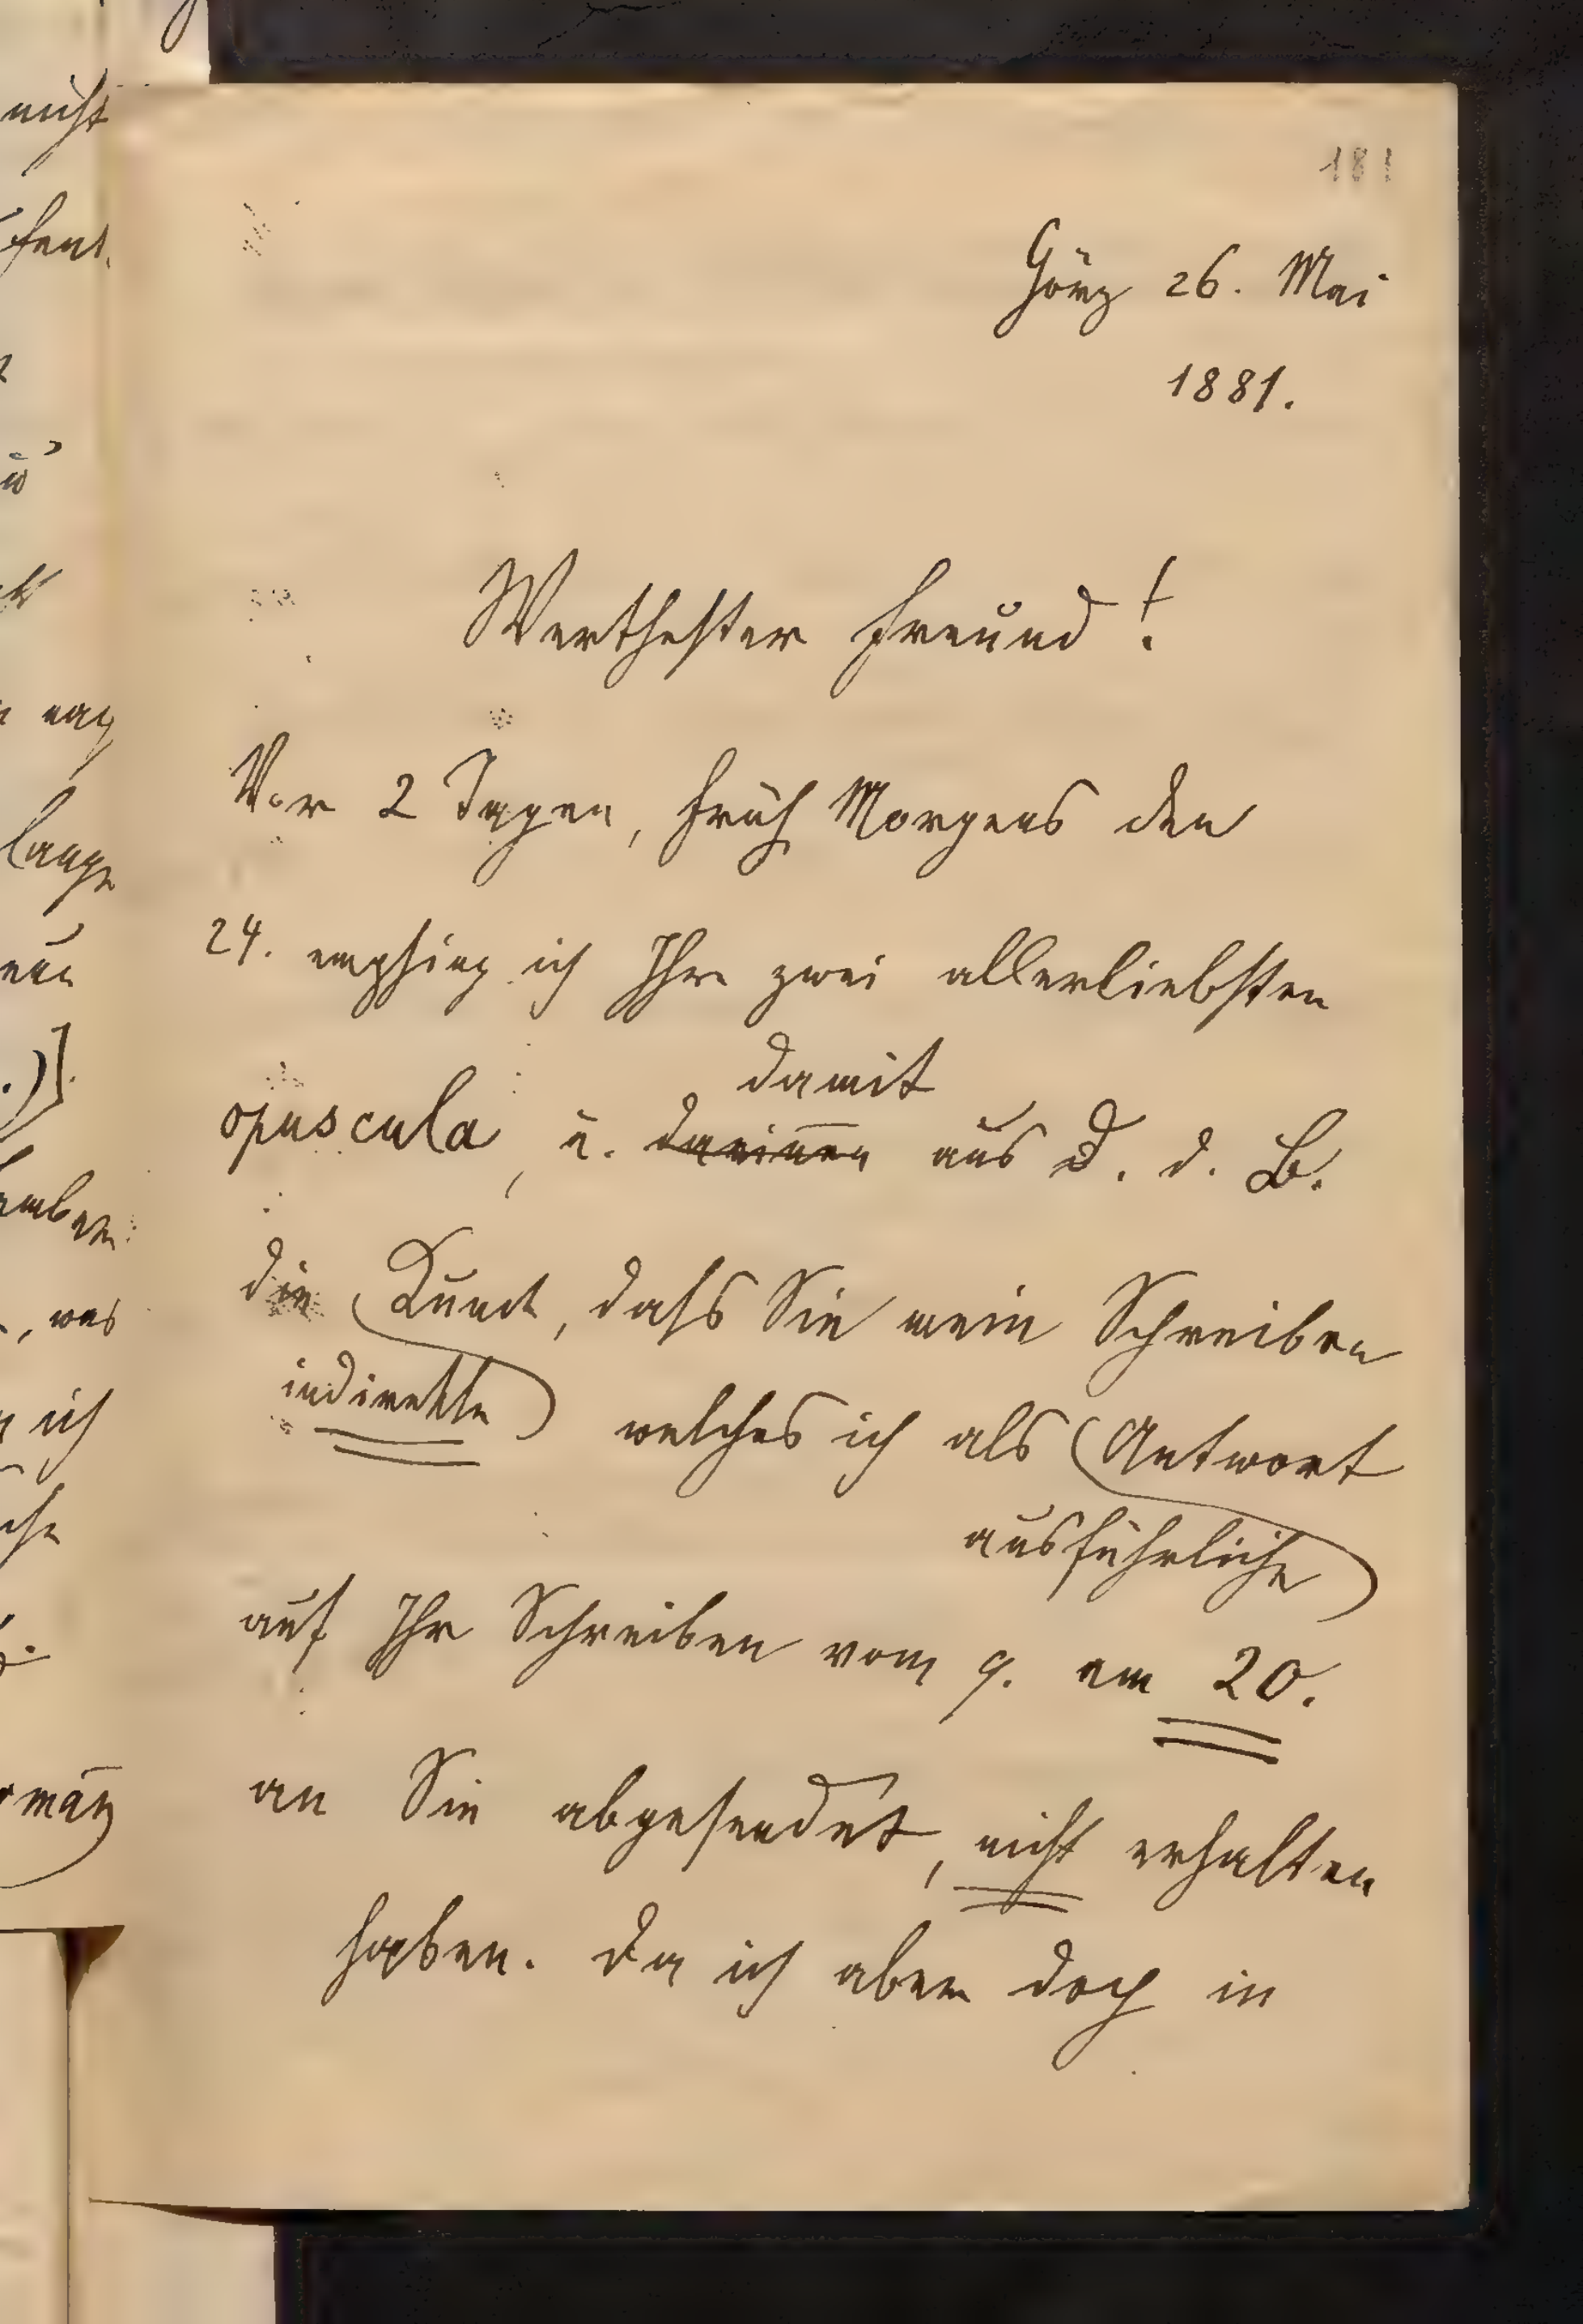 nicht
181
Görz 26. Mai
1881.
Werthester Freund!
Vor 2 Tagen, früh Morgens den
24. empfing ich Ihre zwei allerliebsten
damit
opuscula, u. darinnen aus D. d. B.
die Kunde, dafs Sie mein Schreiben
indirekte welches ich als Antwort
ausführliche
auf Ihr Schreiben vom 9. am 20.
an Sie abgesendet, nicht erhalten
haben. Da ich aber doch in
lange
, was
ich